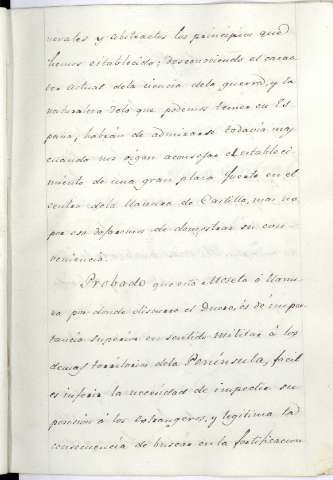 nerales y abstractos los principios que
hemos establecido; desconociendo el carac
ter actual de la ciencia de la guerra, y la
naturaleza de lo que podemos temer en Es
paña, habrán de admirarse todavia mas
cuando nos oigan aconsejar el estableci
miento de una gran plaza fuerte en el
centro de la llanura de Castilla, mas no
por eso dejaremos de demostrar su con
veniencia.
Probado que esta Meseta ó llanu
ra por donde discurre el Duero, es de impor
tancia superior en sentido militar á los
demas territorios de la Península, facil
es inferir la necesidad de impedir su
posesion á los estrangeros, y legitima la
consecuencia de buscar en la fortificacion